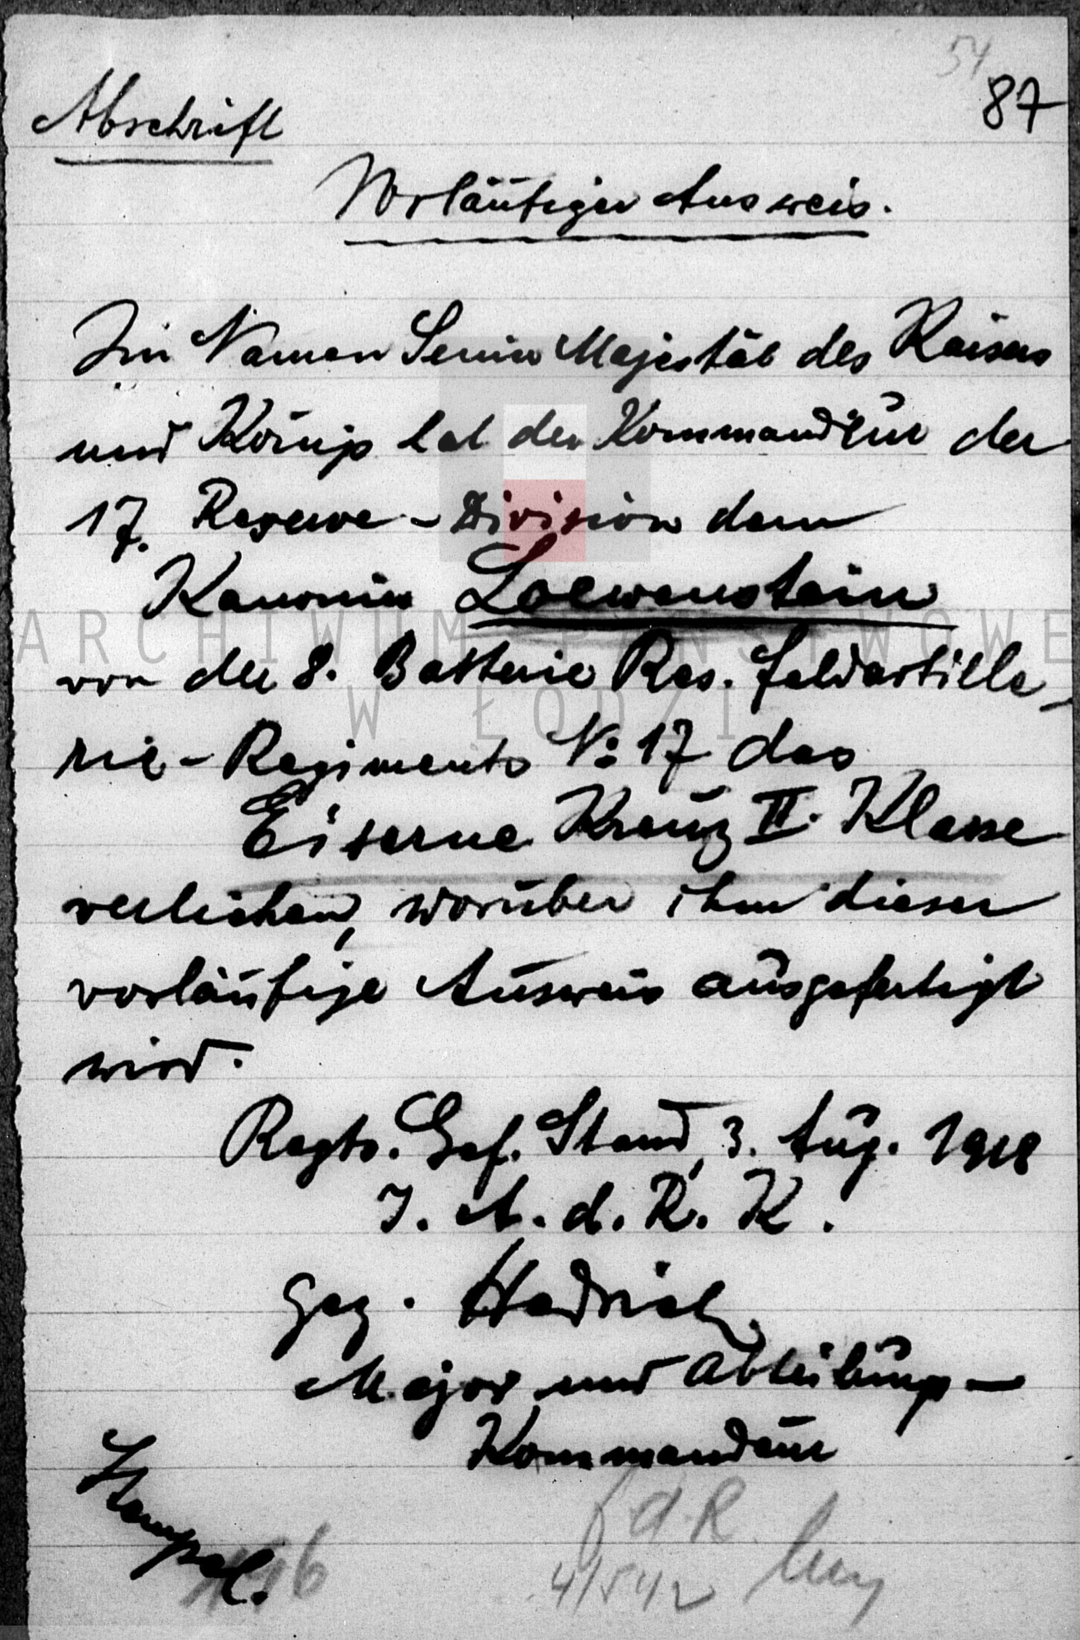 54
87
Abschrift
Vorläufiger Ausweis.
Im Namen Seiner Majestät des Kaisers
und König hat der Kommandeur der
17. Reserve-Division dem
Kanonier Loewenstein
ARCHIWUM PAŃSTWOWE
von der 8. Batterie Res. Feldartille-
W ŁODZI
rie-Regiments No 17 das
Eiserne Kreuz II. Klasse
verliehen, worüber ihm dieser
vorläufige Ausweis ausgefertigt
wird.
Regts. Gef. Stand, 3. Aug. 1918
I. A. d. R. K.
gez. Hadrich
Major und Abteilungs-
Kommandeur
Stempel.
f d. R